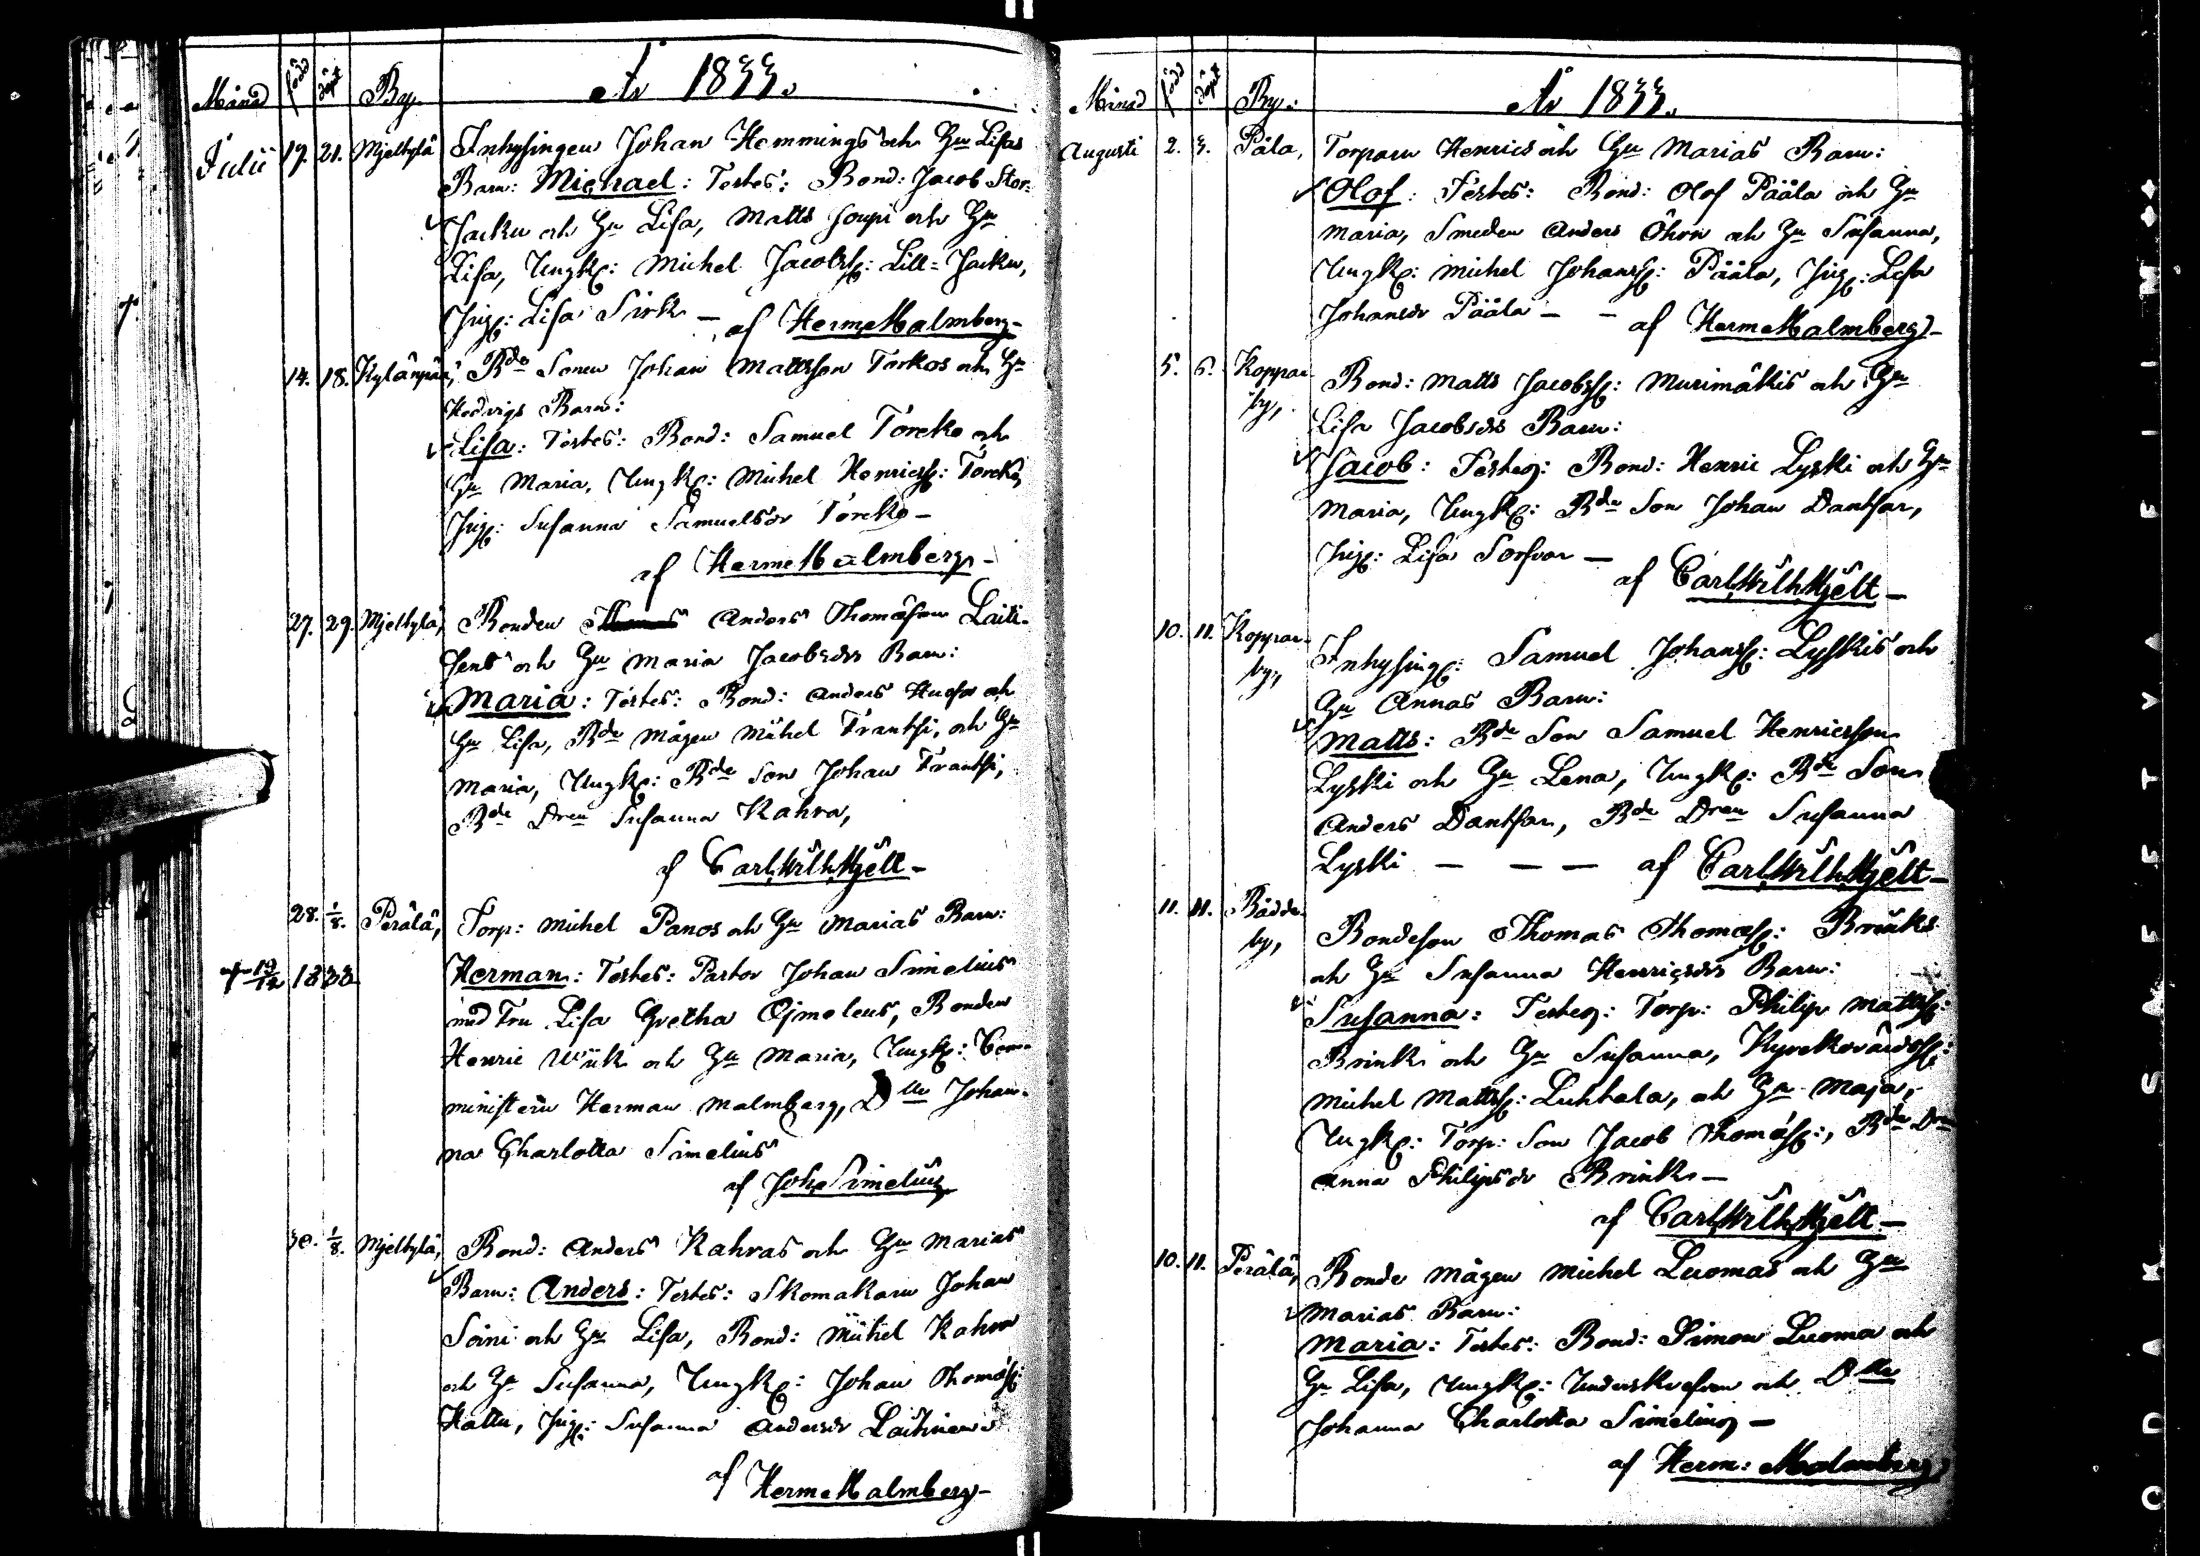 Månad född döpt By År 1833.
Julii 19. 21. Mjelbylä Inhysingen Johan Hemmings och Hu Lisas
Barn: Michael: Testes: Bond: Jacob Stor-
Jacku och Hu Lisa, Matts Joupi och Hu
Lisa, Ungk: Michel Jacobss: Lill-Jacku,
Pig: Lisa Sirk – af Herm Malmberg –
14. 18. Kylänpää, Bde Sonen Johan Mattsson Torkos och Hu
Hedvigs Barn:
Lisa: Testes: Bond: Samuel Törckö och
Hu Maria, Ungk: Michel Henricss: Törckö,
Pig: Susanna Samuelsdr Törckö –
af Herm Malmberg –
27. 29. Mjelbylä, Bonden Anders Thomasson Laiti-
sens och Hu Maria Jacobsdrs Barn:
Maria: Testes: Bond: Anders och
Hu Lisa, Bde Mågen Michel Frantsi, och Hu
Maria, Ungk: Bde Son Johan Frantsi,
Bde Dren Susanna Kahra,
af Carl Wilh Hjelt –
28. 1/8. Perälä, Torp: Michel Panos och Hu Marias Barn:
† 19/12 1833 Herman: Testes: Pastor Johan Simelius
med Fru Lisa Gretha Ojmeleus, Bonden
Henric Wiik och Hu Maria, Ungk: Com-
ministern Herman Malmberg, Dlle Johan-
na Charlotta Simelius
af Joh Simelius
30. 1/8. Mjelbylä, Bond: Anders Kahras och Hu Marias
Barn: Anders: Testes: Skomakarn Johan
Soini och Hu Lisa, Bond: Michel Kahra
och Hu Susanna, Ungk: Johan Thomass:
Hattu, Pig: Susanna Andersdr Laitinen
af Herm Malmberg –
Månad född döpt By: År 1833.
Augusti 2. 3. Påla, Torparn Henrics och Hu Marias Barn:
Olof: Testes: Bond: Olof Pääla och Hu
Maria, Smeden Anders Öhrn och Hu Susanna,
Ungk: Michel Johanss: Pääla, Pig: Lisa
Johansdr Pääla – – af Herm Malmberg –
5. 6. Koppar-
by, Bond: Matts Jacobss: Murimäkis och Hu
Lisa Jacobsdrs Barn:
Jacob: Testes: Bond: Henric Lyski och Hu
Maria, Ungk: Bde Son Johan Dantsar,
Pig: Lisa Sorsvar –
af Carl Wilh Hjelt –
10. 11. Koppar-
by, Inhysing: Samuel Johanss: Lyskis och
Hu Annas Barn:
Matts: Bde Son Samuel Henricsson
Lyski och Hu Lena, Ungk: Bde Son
Anders Dantsar, Bde Dren Susanna
Lyski – – – af Carl Wilh Hjelt –
11. 11. Bädde-
by, Bondeson Thomas Thomass: Brinks
och Hu Susanna Henricsdrs Barn:
Susanna: Testes: Torp: Philip Mattss:
Brink och Hu Susanna, Kyrkovärdss:
Michel Mattss: Luhtala, och Hu Maja,
Ungk: Torp: Son Jacob Thomass:, Bde Dren
Anna Philipsdr Brink –
af Carl Wilh Hjelt –
10. 11. Perälä, Bonde Mågen Michel Luomas och Hu
Marias Barn:
Maria: Testes: Bond: Simon Luoma och
Hu Lisa, Ungk: Underskrefven och Dlle
Johanna Charlotta Simelius –
af Herm: Malmberg
KODAK SAFETY FILM